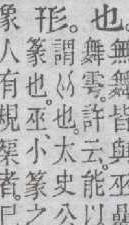 無舞皆與巫
也。舞雩。許云。能以
形。謂㕥也。太史公
篆也。巫小篆之
象人有規榘者。